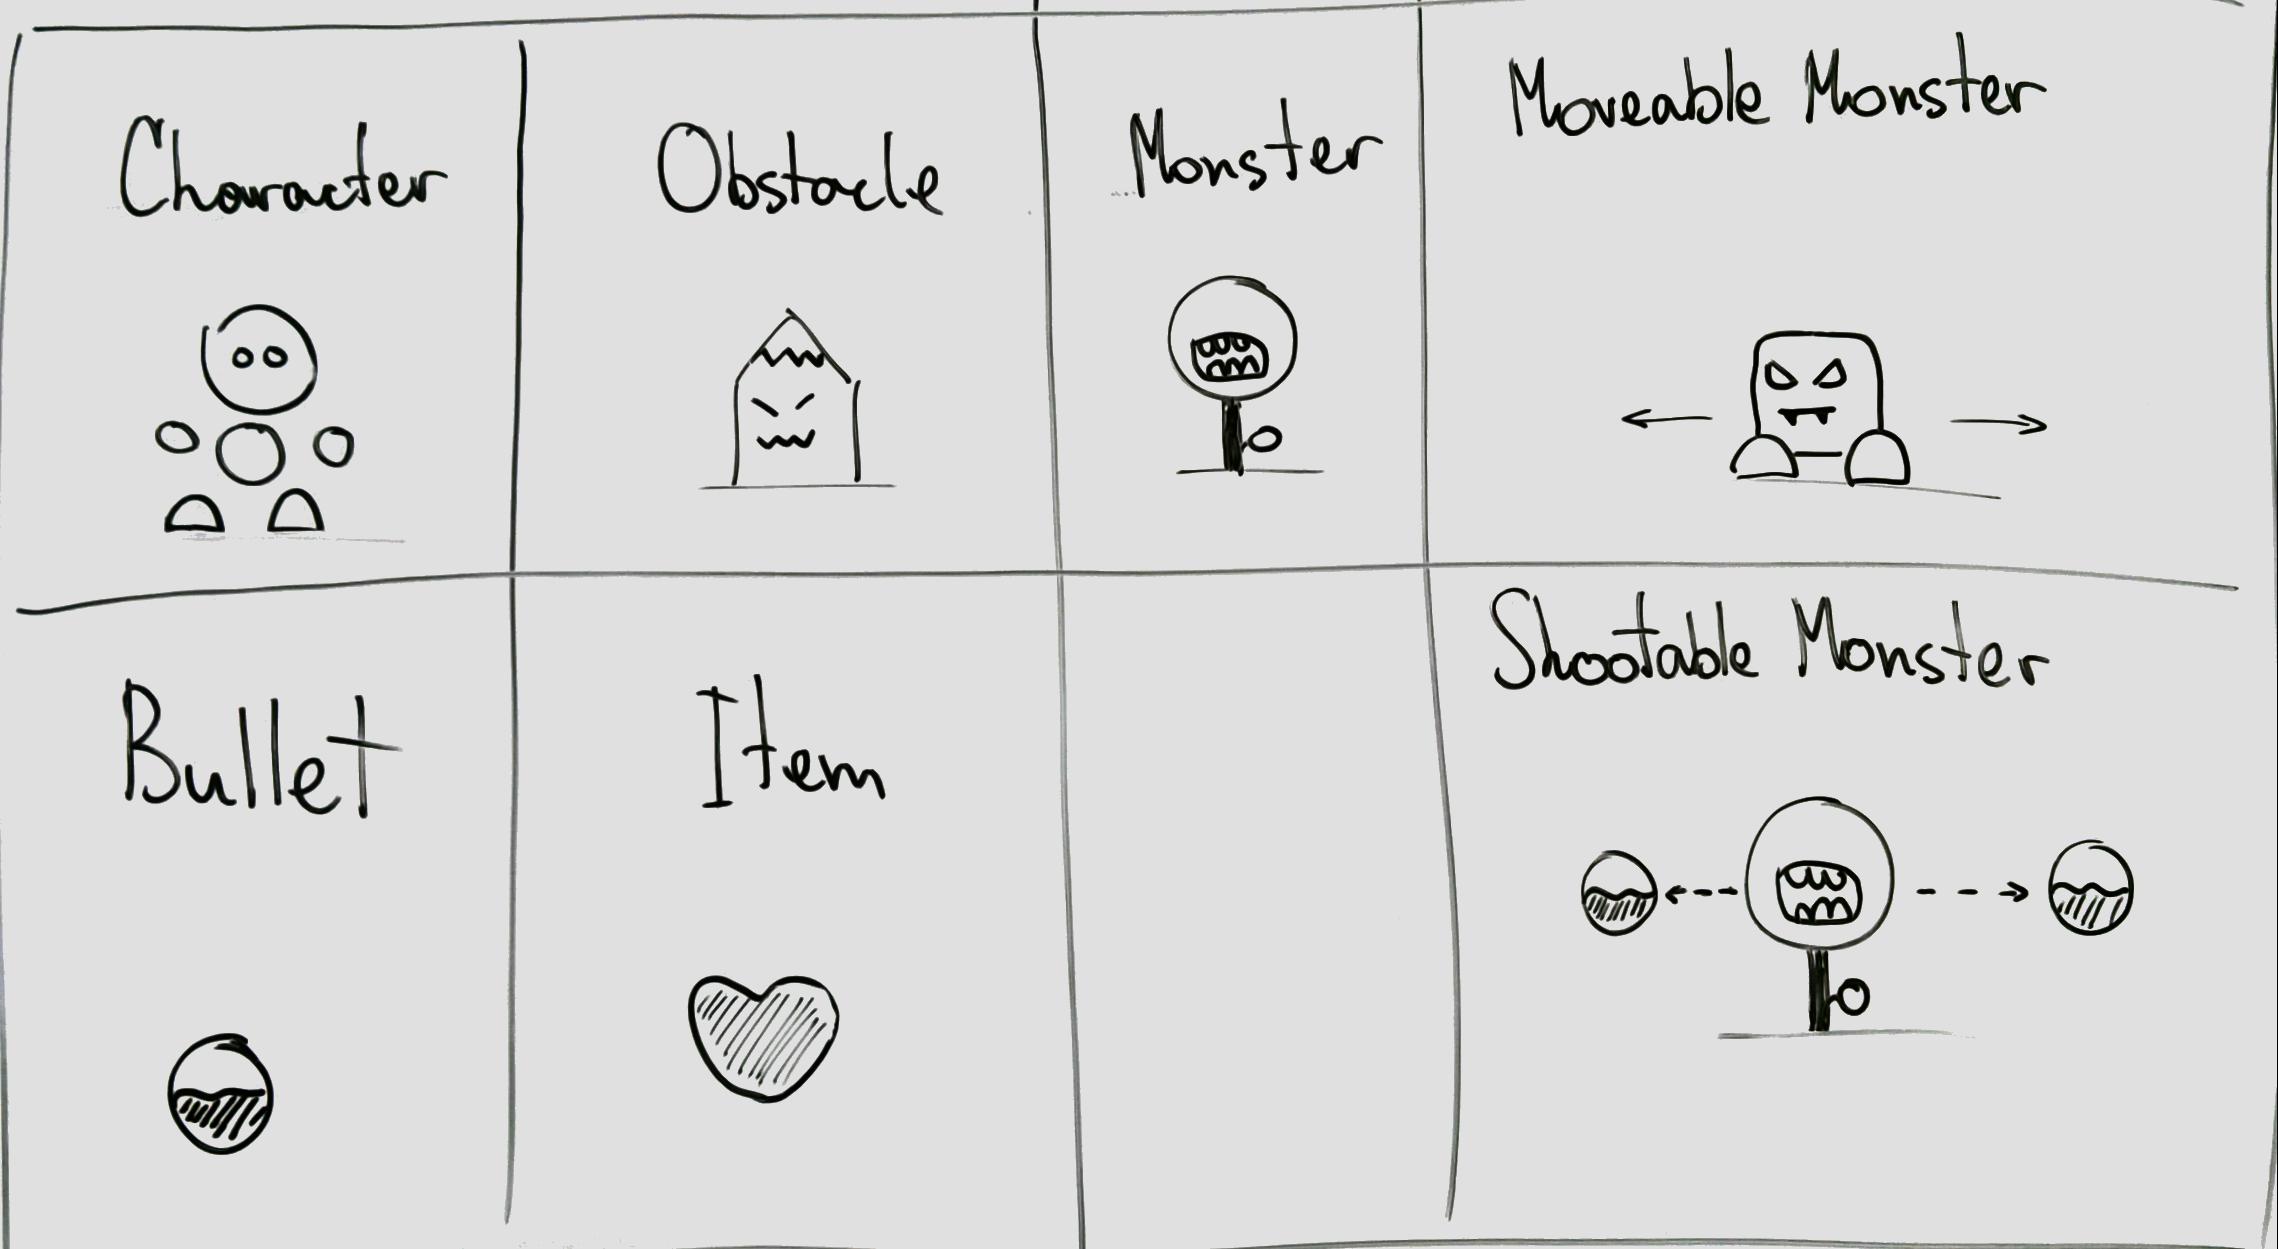 Character
Obstacle
Monster
Moveable Monster
Bullet
Item
Shootable Monster